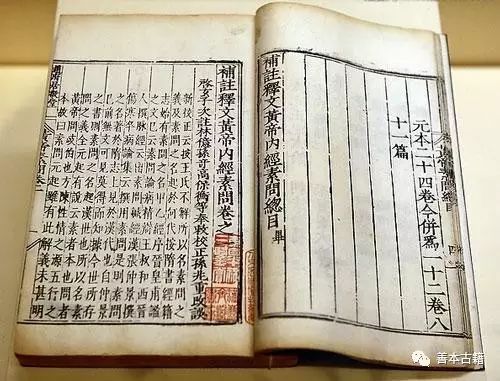 元本二十四卷今併爲一十二卷八
十一篇
補註釋文黃帝內經素問總目畢
補註釋文黃帝內經素問卷之
啓玄子次註林億孫奇高保衡等奉敕校正孫兆重改誤
新校正云按王氏不解所以名素問之
義及素問之名起於何代按隋書經籍
志始有素問之名甲乙經序晉皇甫謐
之文已云素問論病精辨王叔和西晉
人撰脉經云出素問鍼經漢張仲景撰
傷寒卒病論集云撰用素問是則素問
之名著於隋志上見於漢代也自仲景
已前無文可見莫得而知據今世所存
之書則素問之名起漢世也所以名素
問之義全元起有說云素者本也問者
黃帝問岐伯也方陳性情之源五行之
本故曰素問元起雖有此解義未甚明
善本古籍